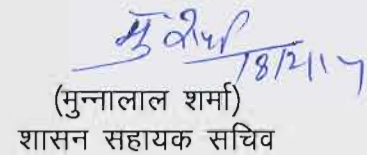 18/2/17
(मुन्नालाल शर्मा)
शासन सहायक सचिव